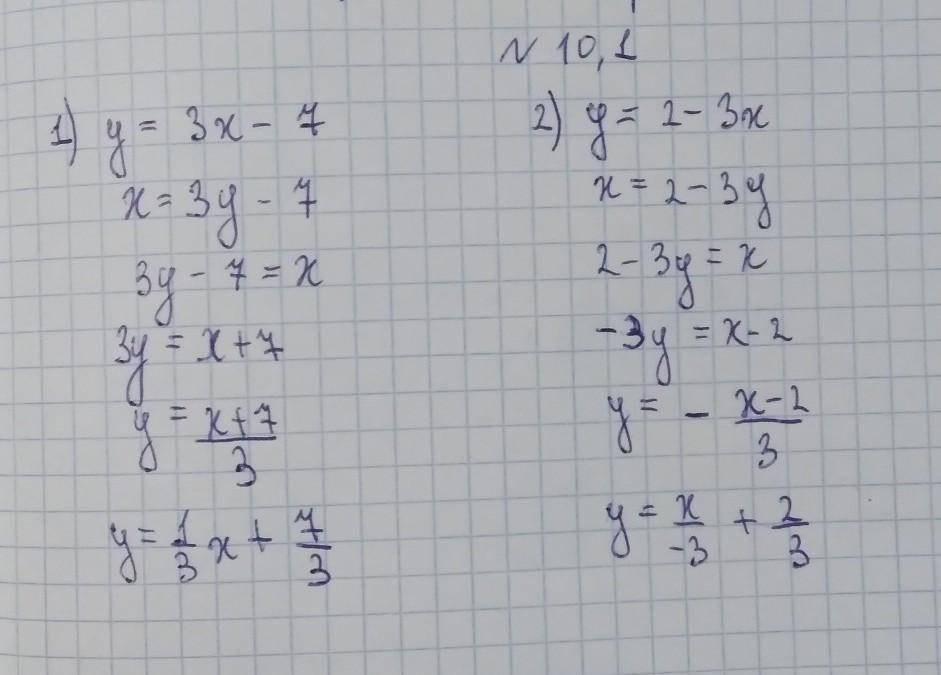 N 10,1
1) y = 3x - 7
x = 3y - 7
3y - 7 = x
3y = x + 7
y = (x+7)/3
y = 1/3 x + 7/3
2) y = 2 - 3x
x = 2 - 3y
2 - 3y = x
-3y = x - 2
y = - (x-2)/3
y = x/-3 + 2/3